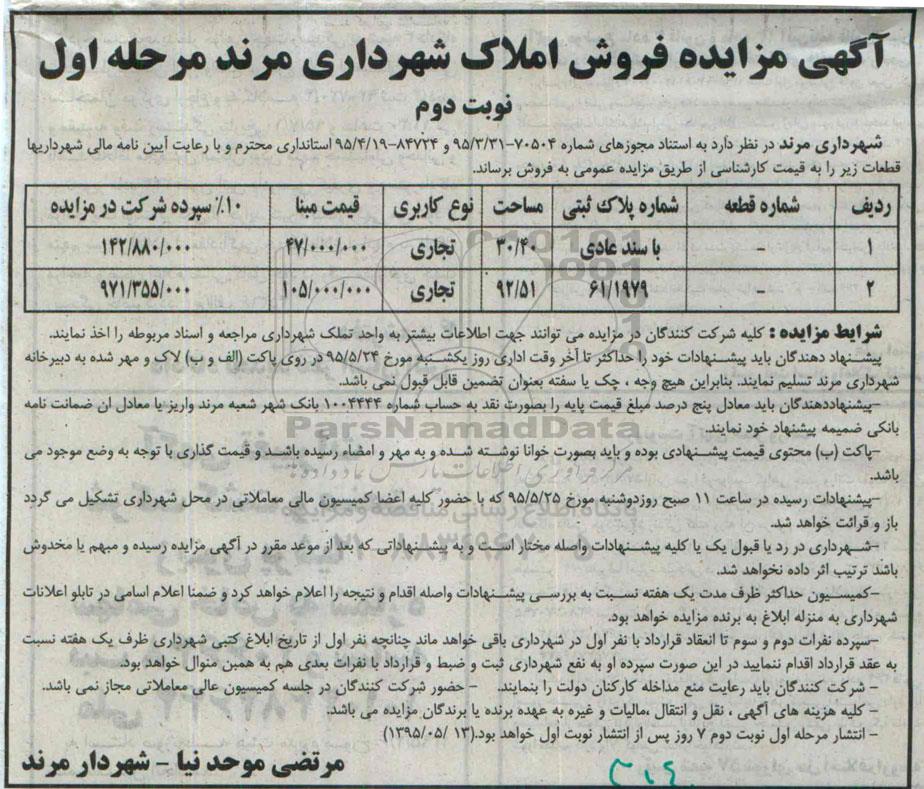 آگهی مزایده فروش املاک شهرداری مرند مرحله اول
نوبت دوم
شهرداری مرند در نظر دارد به استناد مجوزهای شماره ۷۰۵۰۴-۹۵/۳/۳۱ و ۸۴۷۲۴-۹۵/۴/۱۹ استانداری محترم و با رعایت آیین نامه مالی شهرداریها
قطعات زیر را به قیمت کارشناسی از طریق مزایده عمومی به فروش برساند.
ردیف شماره قطعه شماره پلاک ثبتی مساحت نوع کاربری قیمت مبنا ۱۰٪ سپرده شرکت در مزایده
۱ - با سند عادی ۳۰/۴۰ تجاری ۴۷/۰۰۰/۰۰۰ ۱۴۲/۸۸۰/۰۰۰
۲ - ۶۱/۱۹۷۹ ۹۲/۵۱ تجاری ۱۰۵/۰۰۰/۰۰۰ ۹۷۱/۳۵۵/۰۰۰
شرایط مزایده : کلیه شرکت کنندگان در مزایده می توانند جهت اطلاعات بیشتر به واحد تملک شهرداری مراجعه و اسناد مربوطه را اخذ نمایند.
پیشنهاد دهندگان باید پیشنهادات خود را حداکثر تا آخر وقت اداری روز یکشنبه مورخ ۹۵/۵/۲۴ در روی پاکت (الف و ب) لاک و مهر شده به دبیرخانه
شهرداری مرند تسلیم نمایند. بنابراین هیچ وجه ، چک یا سفته بعنوان تضمین قابل قبول نمی باشد.
-پیشنهاددهندگان باید معادل پنج درصد مبلغ قیمت پایه را بصورت نقد به حساب شماره ۱۰۰۴۴۴۴ بانک شهر شعبه مرند واریز یا معادل ان ضمانت نامه
بانکی ضمیمه پیشنهاد خود نمایند.
ParsNamadData
-پاکت (ب) محتوی قیمت پیشنهادی بوده و باید بصورت خوانا نوشته شده و به مهر و امضاء رسیده باشد و قیمت گذاری با توجه به وضع موجود می
باشد.
-پیشنهادات رسیده در ساعت ۱۱ صبح روزدوشنبه مورخ ۹۵/۵/۲۵ که با حضور کلیه اعضا کمیسیون مالی معاملاتی در محل شهرداری تشکیل می گردد
باز و قرائت خواهد شد.
-شهرداری در رد یا قبول یک یا کلیه پیشنهادات واصله مختار است و به پیشنهاداتی که بعد از موعد مقرر در آگهی مزایده رسیده و مبهم یا مخدوش
باشد ترتیب اثر داده نخواهد شد.
-کمیسیون حداکثر ظرف مدت یک هفته نسبت به بررسی پیشنهادات واصله اقدام و نتیجه را اعلام خواهد کرد و ضمنا اعلام اسامی در تابلو اعلانات
شهرداری به منزله ابلاغ به برنده مزایده خواهد بود.
-سپرده نفرات دوم و سوم تا انعقاد قرارداد با نفر اول در شهرداری باقی خواهد ماند چنانچه نفر اول از تاریخ ابلاغ کتبی شهرداری ظرف یک هفته نسبت
به عقد قرارداد اقدام ننمایید در این صورت سپرده او به نفع شهرداری ثبت و ضبط و قرارداد با نفرات بعدی هم به همین منوال خواهد بود.
- شرکت کنندگان باید رعایت منع مداخله کارکنان دولت را بنمایند. - حضور شرکت کنندگان در جلسه کمیسیون عالی معاملاتی مجاز نمی باشد.
- کلیه هزینه های آگهی ، نقل و انتقال ،مالیات و غیره به عهده برنده یا برندگان مزایده می باشد.
- انتشار مرحله اول نوبت دوم ۷ روز پس از انتشار نوبت اول خواهد بود.(۱۳ /۱۳۹۵/۰۵)
مرتضی موحد نیا - شهردار مرند